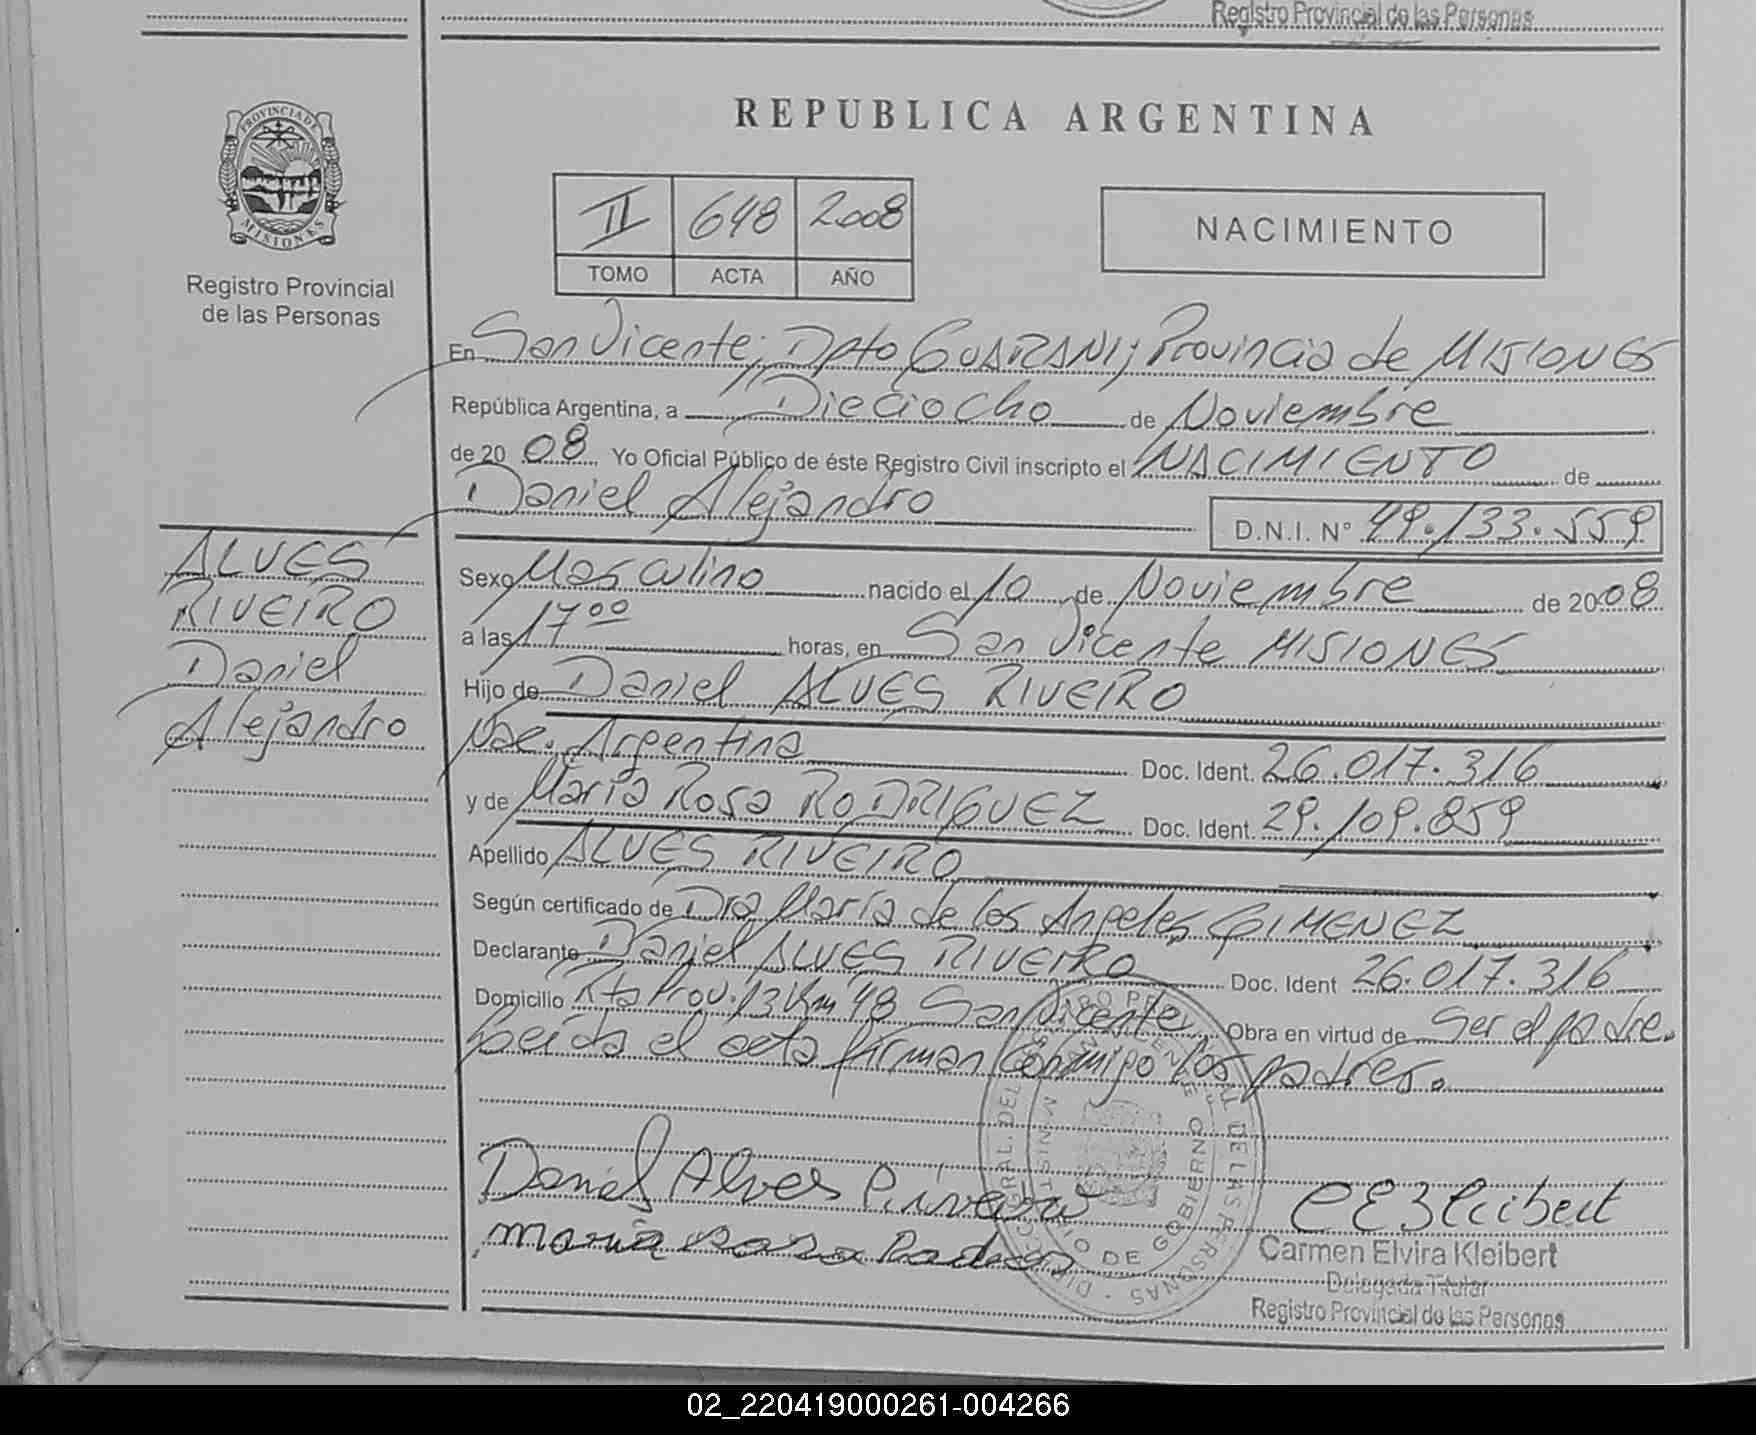 Registro Provincial de las Personas
PROVINCIA DE
MISIONES
Registro Provincial
de las Personas
REPUBLICA ARGENTINA
II 648 2008
TOMO ACTA AÑO
NACIMIENTO
En San Vicente, Dpto GUARANI, Provincia de MISIONES
República Argentina, a Dieciocho de Noviembre
de 20 08 Yo Oficial Público de éste Registro Civil inscripto el NACIMIENTO de
Daniel Alejandro D.N.I. N° 49.133.559
ALVES
RIVEIRO
Daniel
Alejandro
Sexo Masculino nacido el 10 de Noviembre de 2008
a las 17 00 horas, en San Vicente MISIONES
Hijo de Daniel ALVES RIVEIRO
Nac. Argentina Doc. Ident. 26.017.316
y de María Rosa RODRIGUEZ Doc. Ident. 29.109.859
Apellido ALVES RIVEIRO
Según certificado de Dra María de los Angeles GIMENEZ
Declarante Daniel ALVES RIVEIRO Doc. Ident 26.017.316
Domicilio Rta Prov. 13 Km 48 San Vicente Obra en virtud de ser el padre.
Leída el acta firman conmigo los padres.
Daniel Alves Riveiro
maria rosa
Carmen Elvira Kleibert
Delegada Titular
Registro Provincial de las Personas
02_220419000261-004266